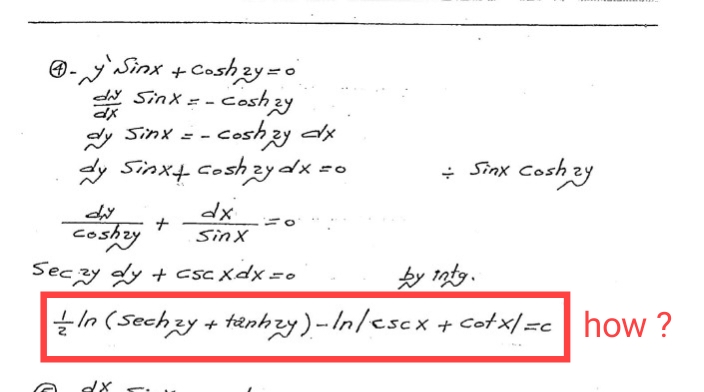 ④- y` Sinx + Cosh 2y = 0
dy/dx Sinx = - Cosh 2y
dy Sinx = - Cosh 2y dx
dy Sinx + Cosh 2y dx = 0 ÷ Sinx Cosh 2y
dy/Cosh 2y + dx/Sinx = 0
Sec 2y dy + csc x dx = 0 by intg.
1/2 ln (Sech 2y + tanh 2y) - ln/cscx + cotx/ = c how ?
dx